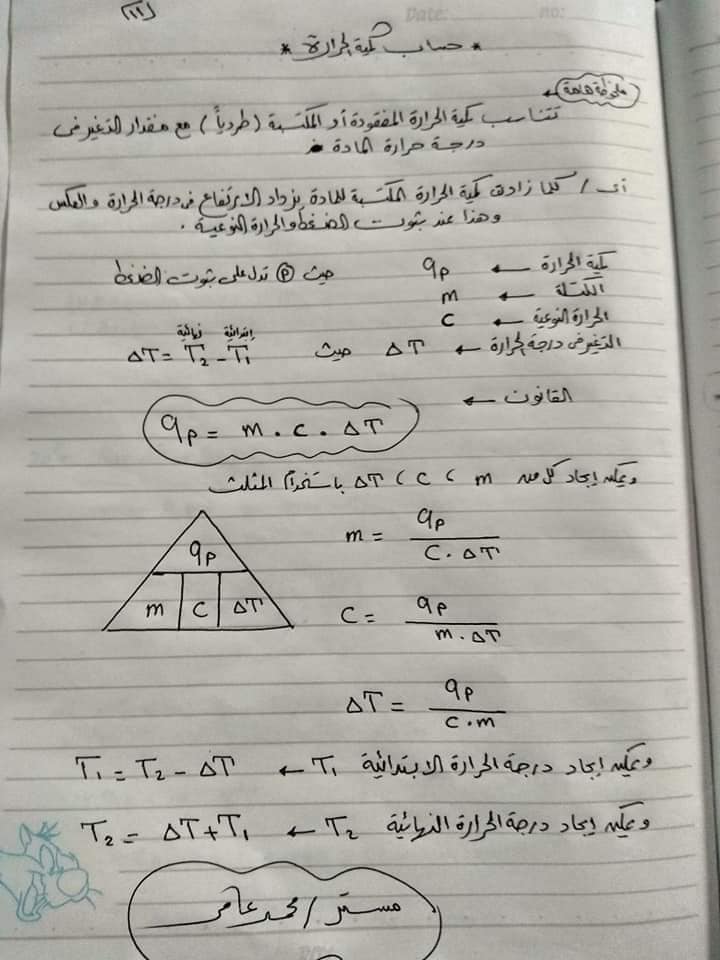 (١١)
Date: no:
* حساب كمية الحرارة *
ملحوظة هامة
تتناسب كمية الحرارة المفقودة أو المكتسبة (طردياً) مع مقدار التغير فى
درجة حرارة المادة .
أى / كلما زادت كمية الحرارة المكتسبة للمادة يزداد الارتفاع فى درجة الحرارة والعكس
وهذا عند ثبوت الضغط والحرارة النوعية .
كمية الحرارة ← qp حيث (P) تدل على ثبوت الضغط
الكتلة ← m
الحرارة النوعية ← C
التغير فى درجة الحرارة ← ΔT حيث ΔT = T2 - T1
نهائية إبتدائية
القانون ←
qp = m . c . ΔT
ويمكن إيجاد كل من m ، C ، ΔT باستخدام المثلث
qp
m C ΔT
m = qp / C . ΔT
C = qp / m . ΔT
ΔT = qp / C . m
ويمكن إيجاد درجة الحرارة الابتدائية T1 ← T1 = T2 - ΔT
ويمكن إيجاد درجة الحرارة النهائية T2 ← T2 = ΔT + T1
مستر / محمد عامر